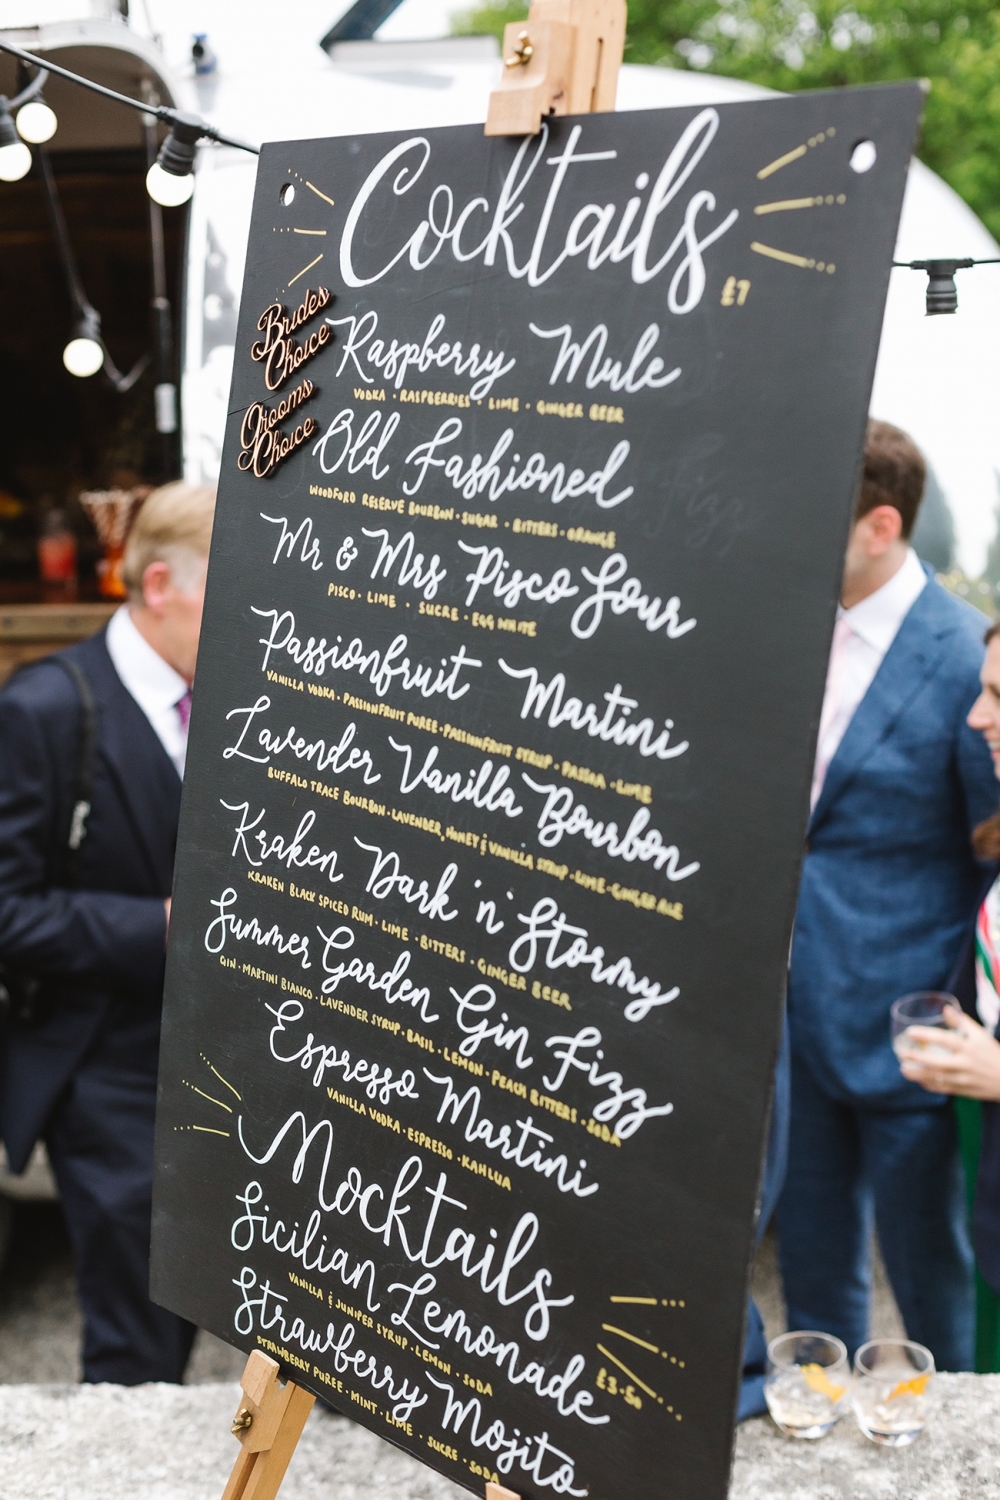 Cocktails
£7
Brides
Choice
Raspberry Mule
VODKA · RASPBERRIES · LIME · GINGER BEER
Grooms
Choice
Old Fashioned
WOODFORD RESERVE BOURBON · SUGAR · BITTERS · ORANGE
Mr & Mrs Pisco Sour
PISCO · LIME · SUCRE · EGG WHITE
Passionfruit Martini
VANILLA VODKA · PASSIONFRUIT PUREE · PASSIONFRUIT SYRUP · PASSOA · LIME
Lavender Vanilla Bourbon
BUFFALO TRACE BOURBON · LAVENDER, HONEY & VANILLA SYRUP · LIME · GINGER ALE
Kraken Dark 'n' Stormy
KRAKEN BLACK SPICED RUM · LIME · BITTERS · GINGER BEER
Summer Garden Gin Fizz
GIN · MARTINI BIANCO · LAVENDER SYRUP · BASIL · LEMON · PEACH BITTERS · SODA
Espresso Martini
VANILLA VODKA · ESPRESSO · KAHLUA
Mocktails
Sicilian Lemonade
£3·50
VANILLA & JUNIPER SYRUP · LEMON · SODA
Strawberry Mojito
STRAWBERRY PUREE · MINT · LIME · SUCRE · SODA